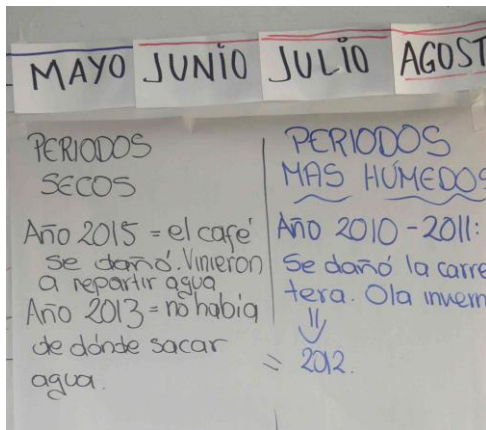 MAYO JUNIO JULIO AGOST
PERIODOS
SECOS
Año 2015 = el café
se dañó. Vinieron
a repartir agua
Año 2013 = no había
de dónde sacar
agua.
PERIODOS
MAS HÚMEDOS
Año 2010 - 2011:
Se dañó la carre
tera. Ola invern
⇓
= 2012.